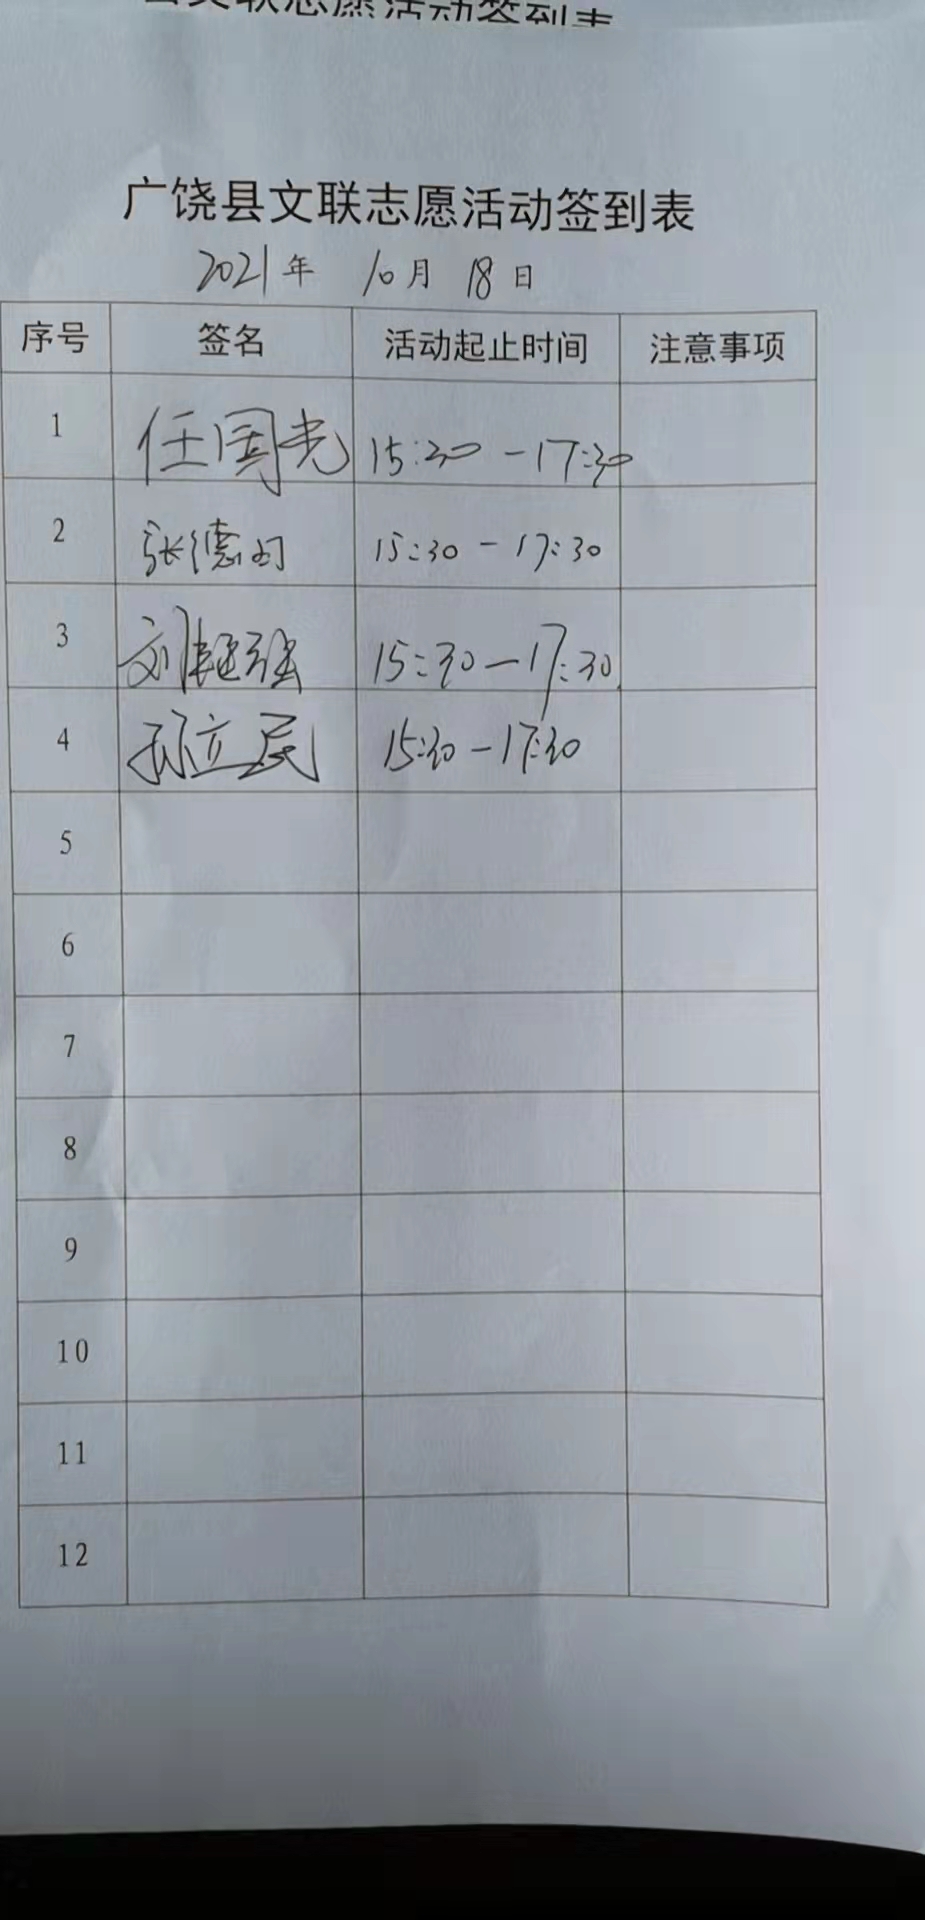 广饶县文联志愿活动签到表
2021年 10月 18日
序号 签名 活动起止时间 注意事项
1 任国光 15:30-17:30
2 张德 15:30-17:30
3 刘继强 15:30-17:30
4 孙立民 15:30-17:30
5
6
7
8
9
10
11
12